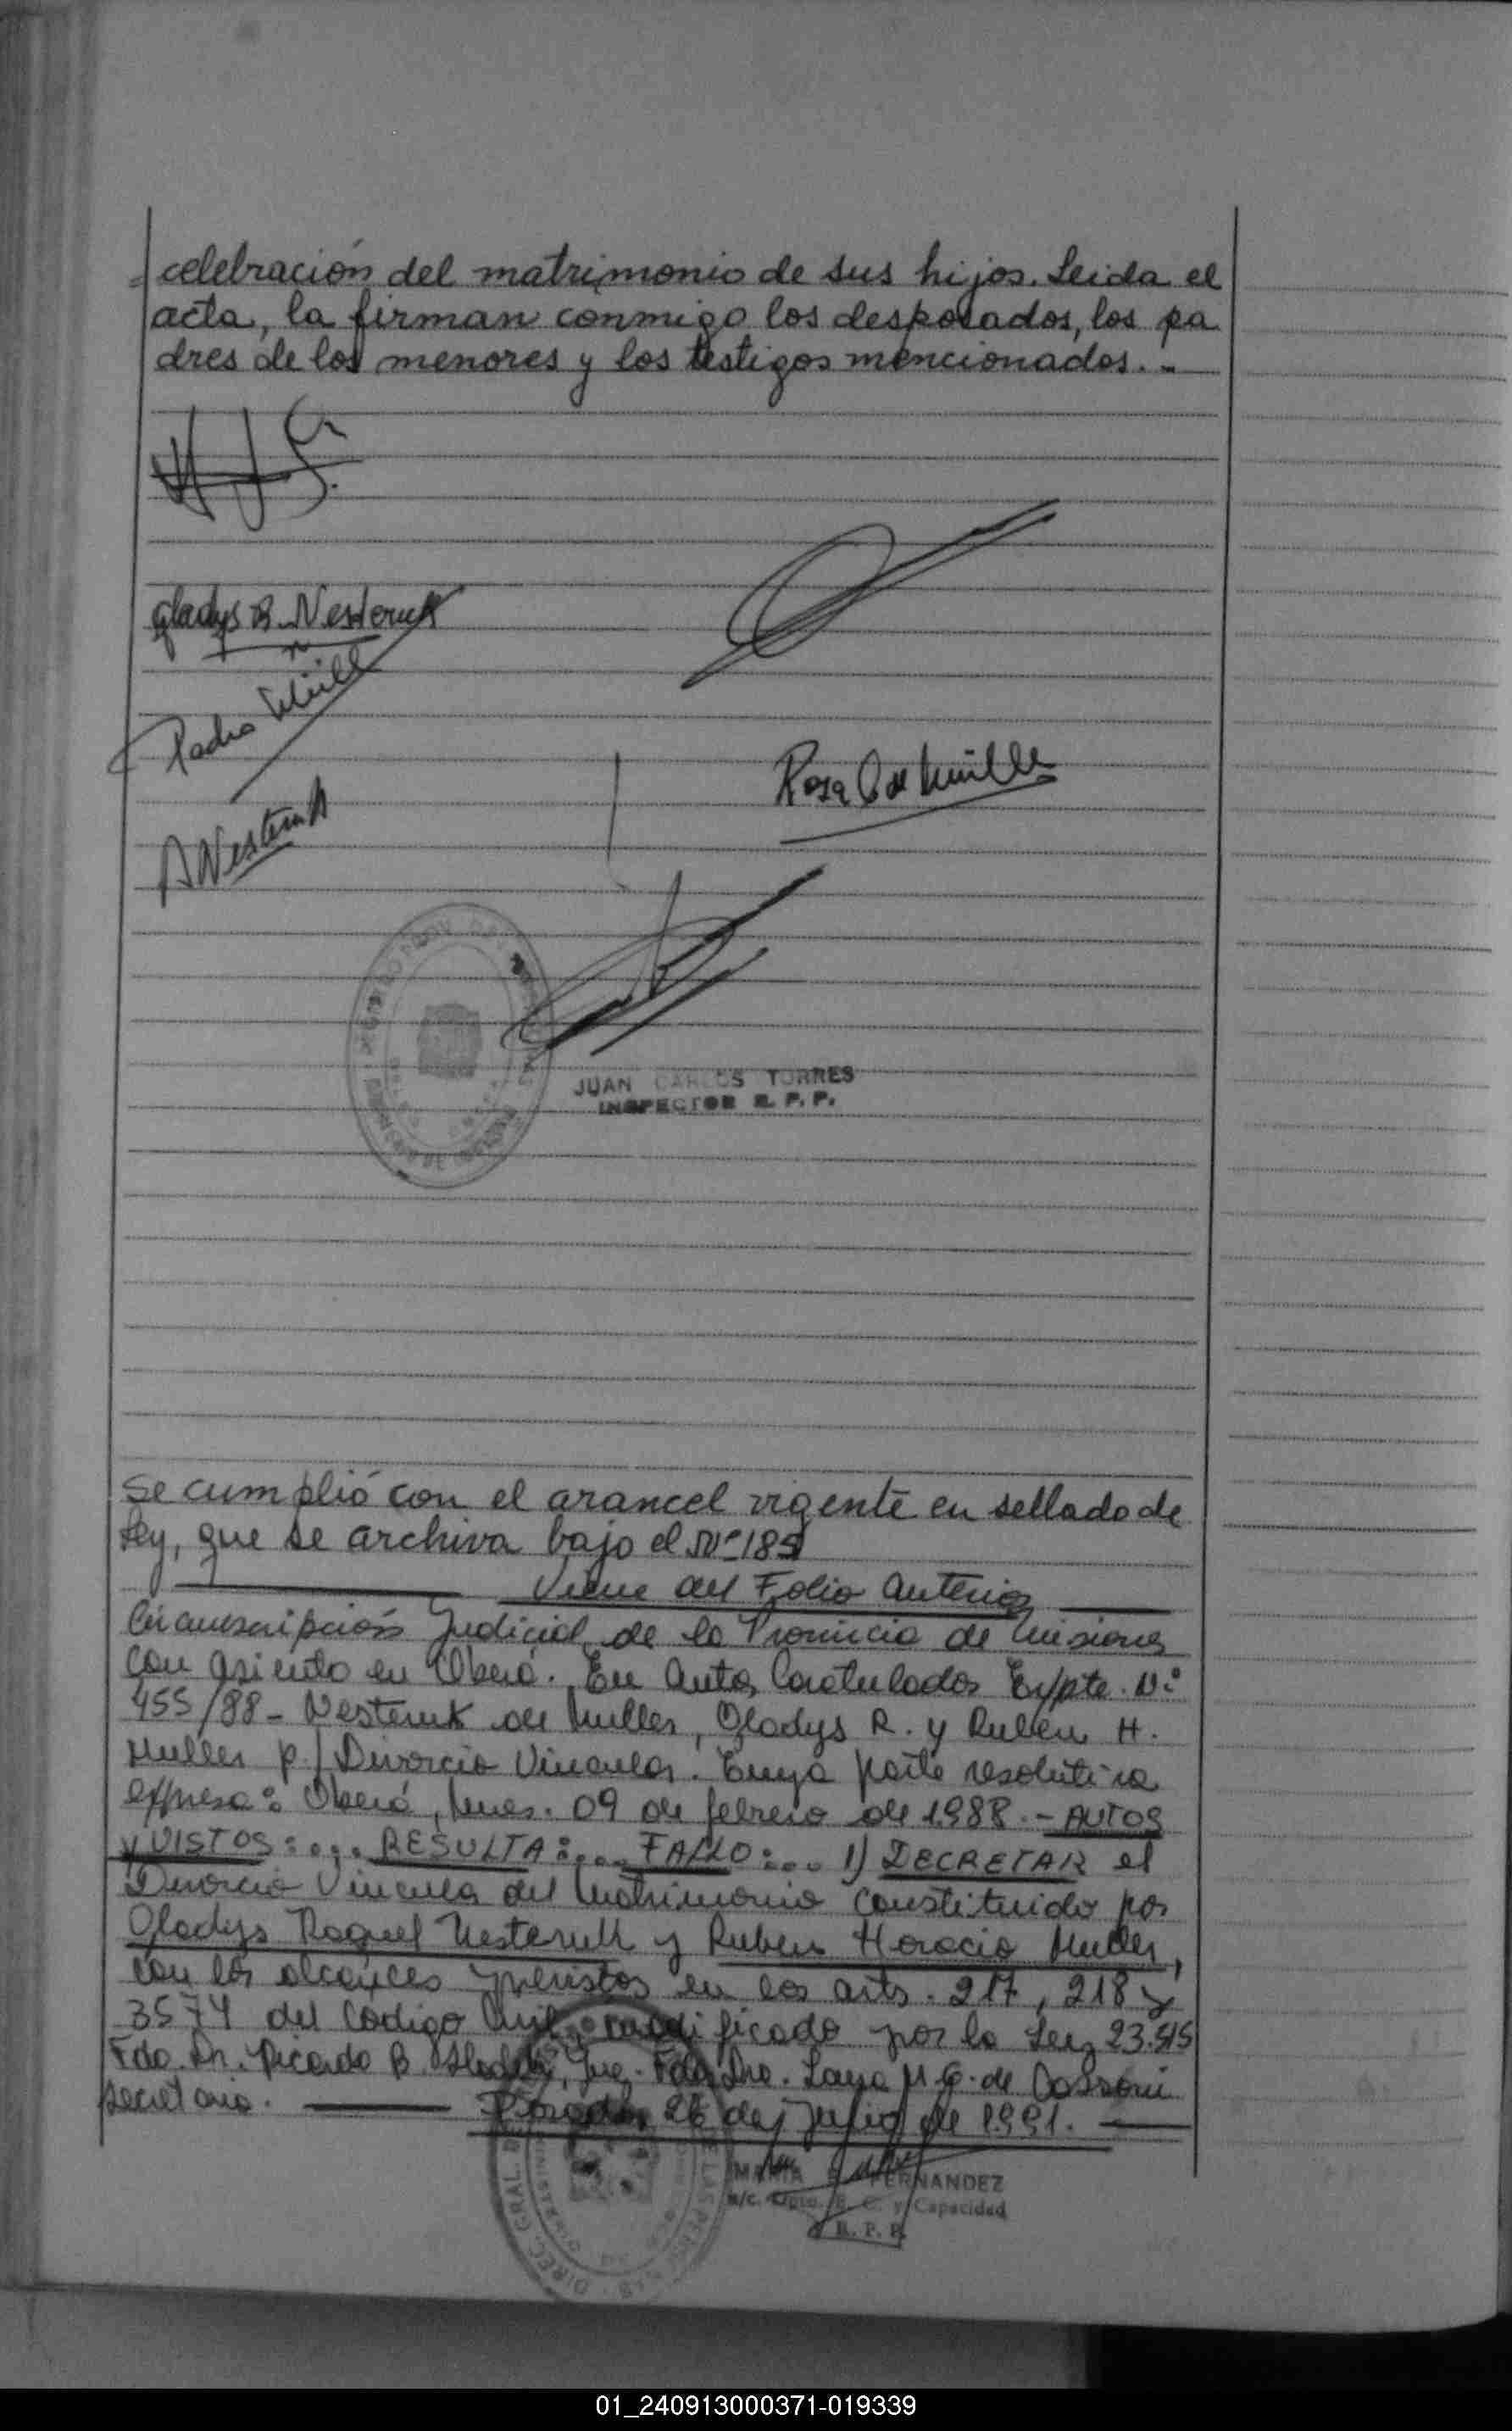 celebración del matrimonio de sus hijos. Leida el
acta, la firman conmigo los desposados, los pa
dres de los menores y los testigos mencionados. -
Gladys R. Nesteruk
Pedro
Rosa de Muller
A Nesteruk
JUAN CARLOS TORRES
INSPECTOR R. P. P.
Se cumplió con el arancel vigente en sellado de
Ley, que se archiva bajo el Nº 185
Viene del Folio Anterior
Circunscripción Judicial de la Provincia de Misiones
con asiento en Oberá. En Autos Caratulados Expte. Nº
455/88 - Nesteruk de Muller, Gladys R. y Ruben H.
Muller p/ Divorcio Vincular. Cuya parte resolutiva
expresa: Oberá, Mnes. 09 de febrero de 1.988. - AUTOS
y VISTOS: .... RESULTA: .... FALLO: ... 1) DECRETAR el
Divorcio Vincular del Matrimonio constituido por
Gladys Raquel Nesteruk y Ruben Horacio Muller,
con los alcances previstos en los arts. 217, 218 y
3574 del Codigo Civil, modificado por la Ley 23.515
Fdo. Dr. Ricardo B. Juez. Fdo. Dra. M. G. de
Secretaria. Posadas, 26 de Julio de 1.991.
MARIA FERNANDEZ
a/c. Dpto. E. C. y Capacidad
R. P. P.
01_240913000371-019339